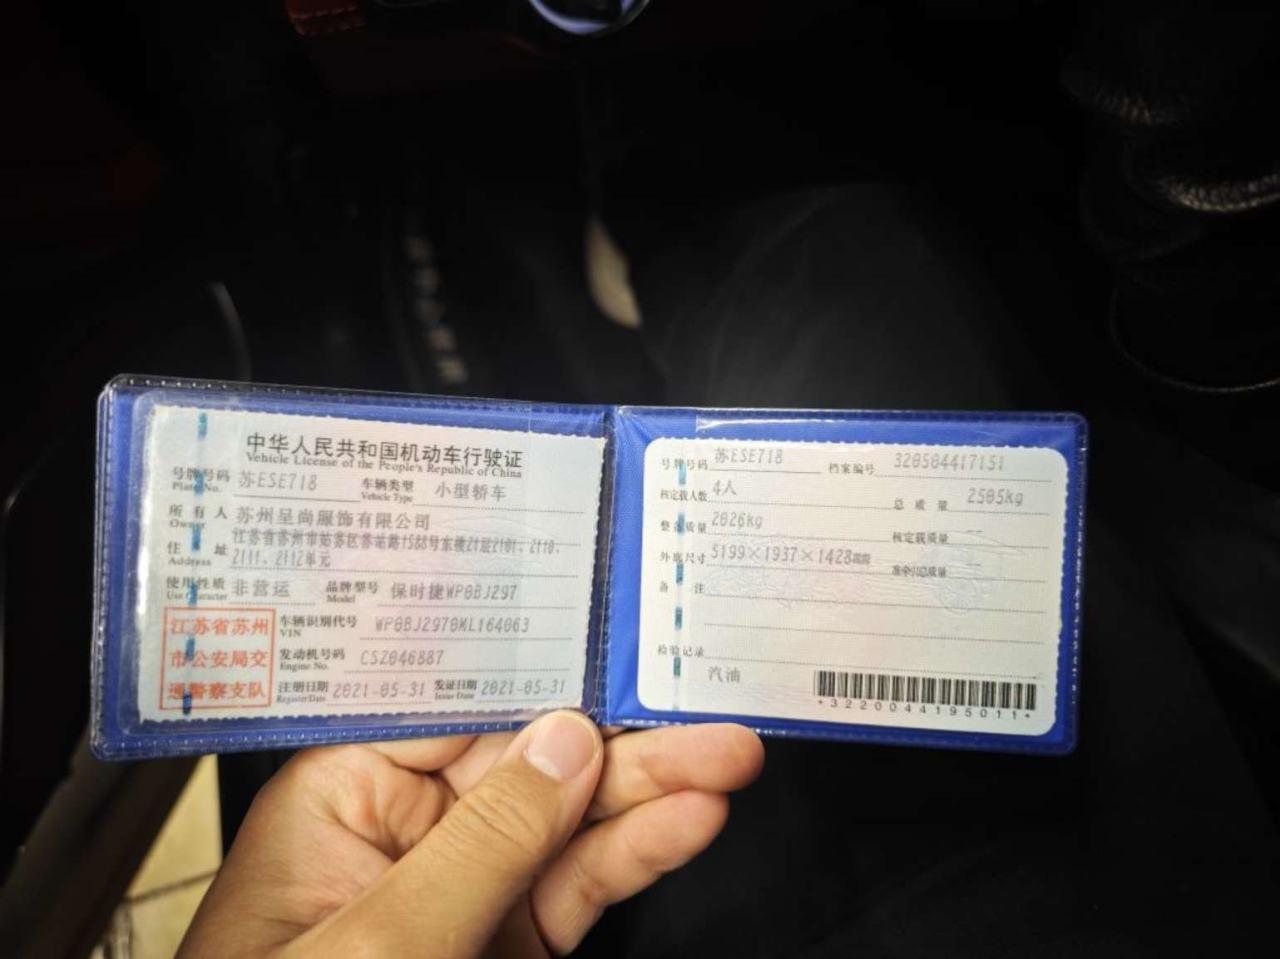 中华人民共和国机动车行驶证
Vehicle License of the People's Republic of China
号牌号码 苏ESE718 车辆类型 小型轿车
Plate No. Vehicle Type
所有人 苏州呈尚服饰有限公司
Owner
住址 江苏省苏州市姑苏区 1588号东楼21层2101、2110、
Address 2111、2112单元
使用性质 非营运 品牌型号 保时捷WP0BJ297
Use Character Model
江苏省苏州
市公安局交
通警察支队
车辆识别代号 WP0BJ2970ML164063
VIN
发动机号码 CSZ046887
Engine No.
注册日期 2021-05-31 发证日期 2021-05-31
Register Date Issue Date
号牌号码 苏ESE718 档案编号 320504417151
核定载人数 4人 总质量 2505kg
整备质量 2026kg 核定载质量 --
外廓尺寸 5199×1937×1428mm 准牵引总质量 --
备注
检验记录
汽油
*3220044195011*